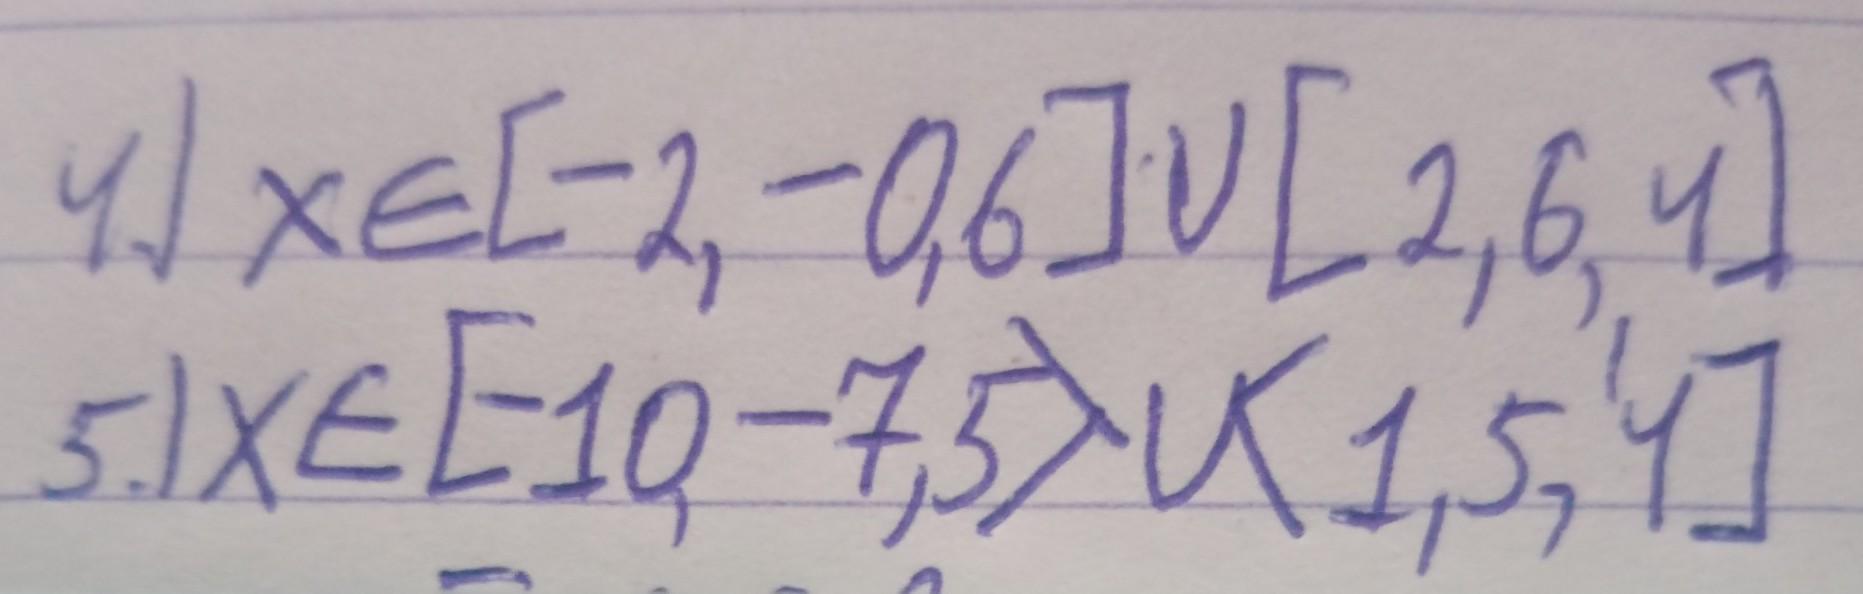 4.) x∈[-2, -0,6]∪[2,6, 4]
5.) x∈[-10, -7,5>∪<1,5, 4]